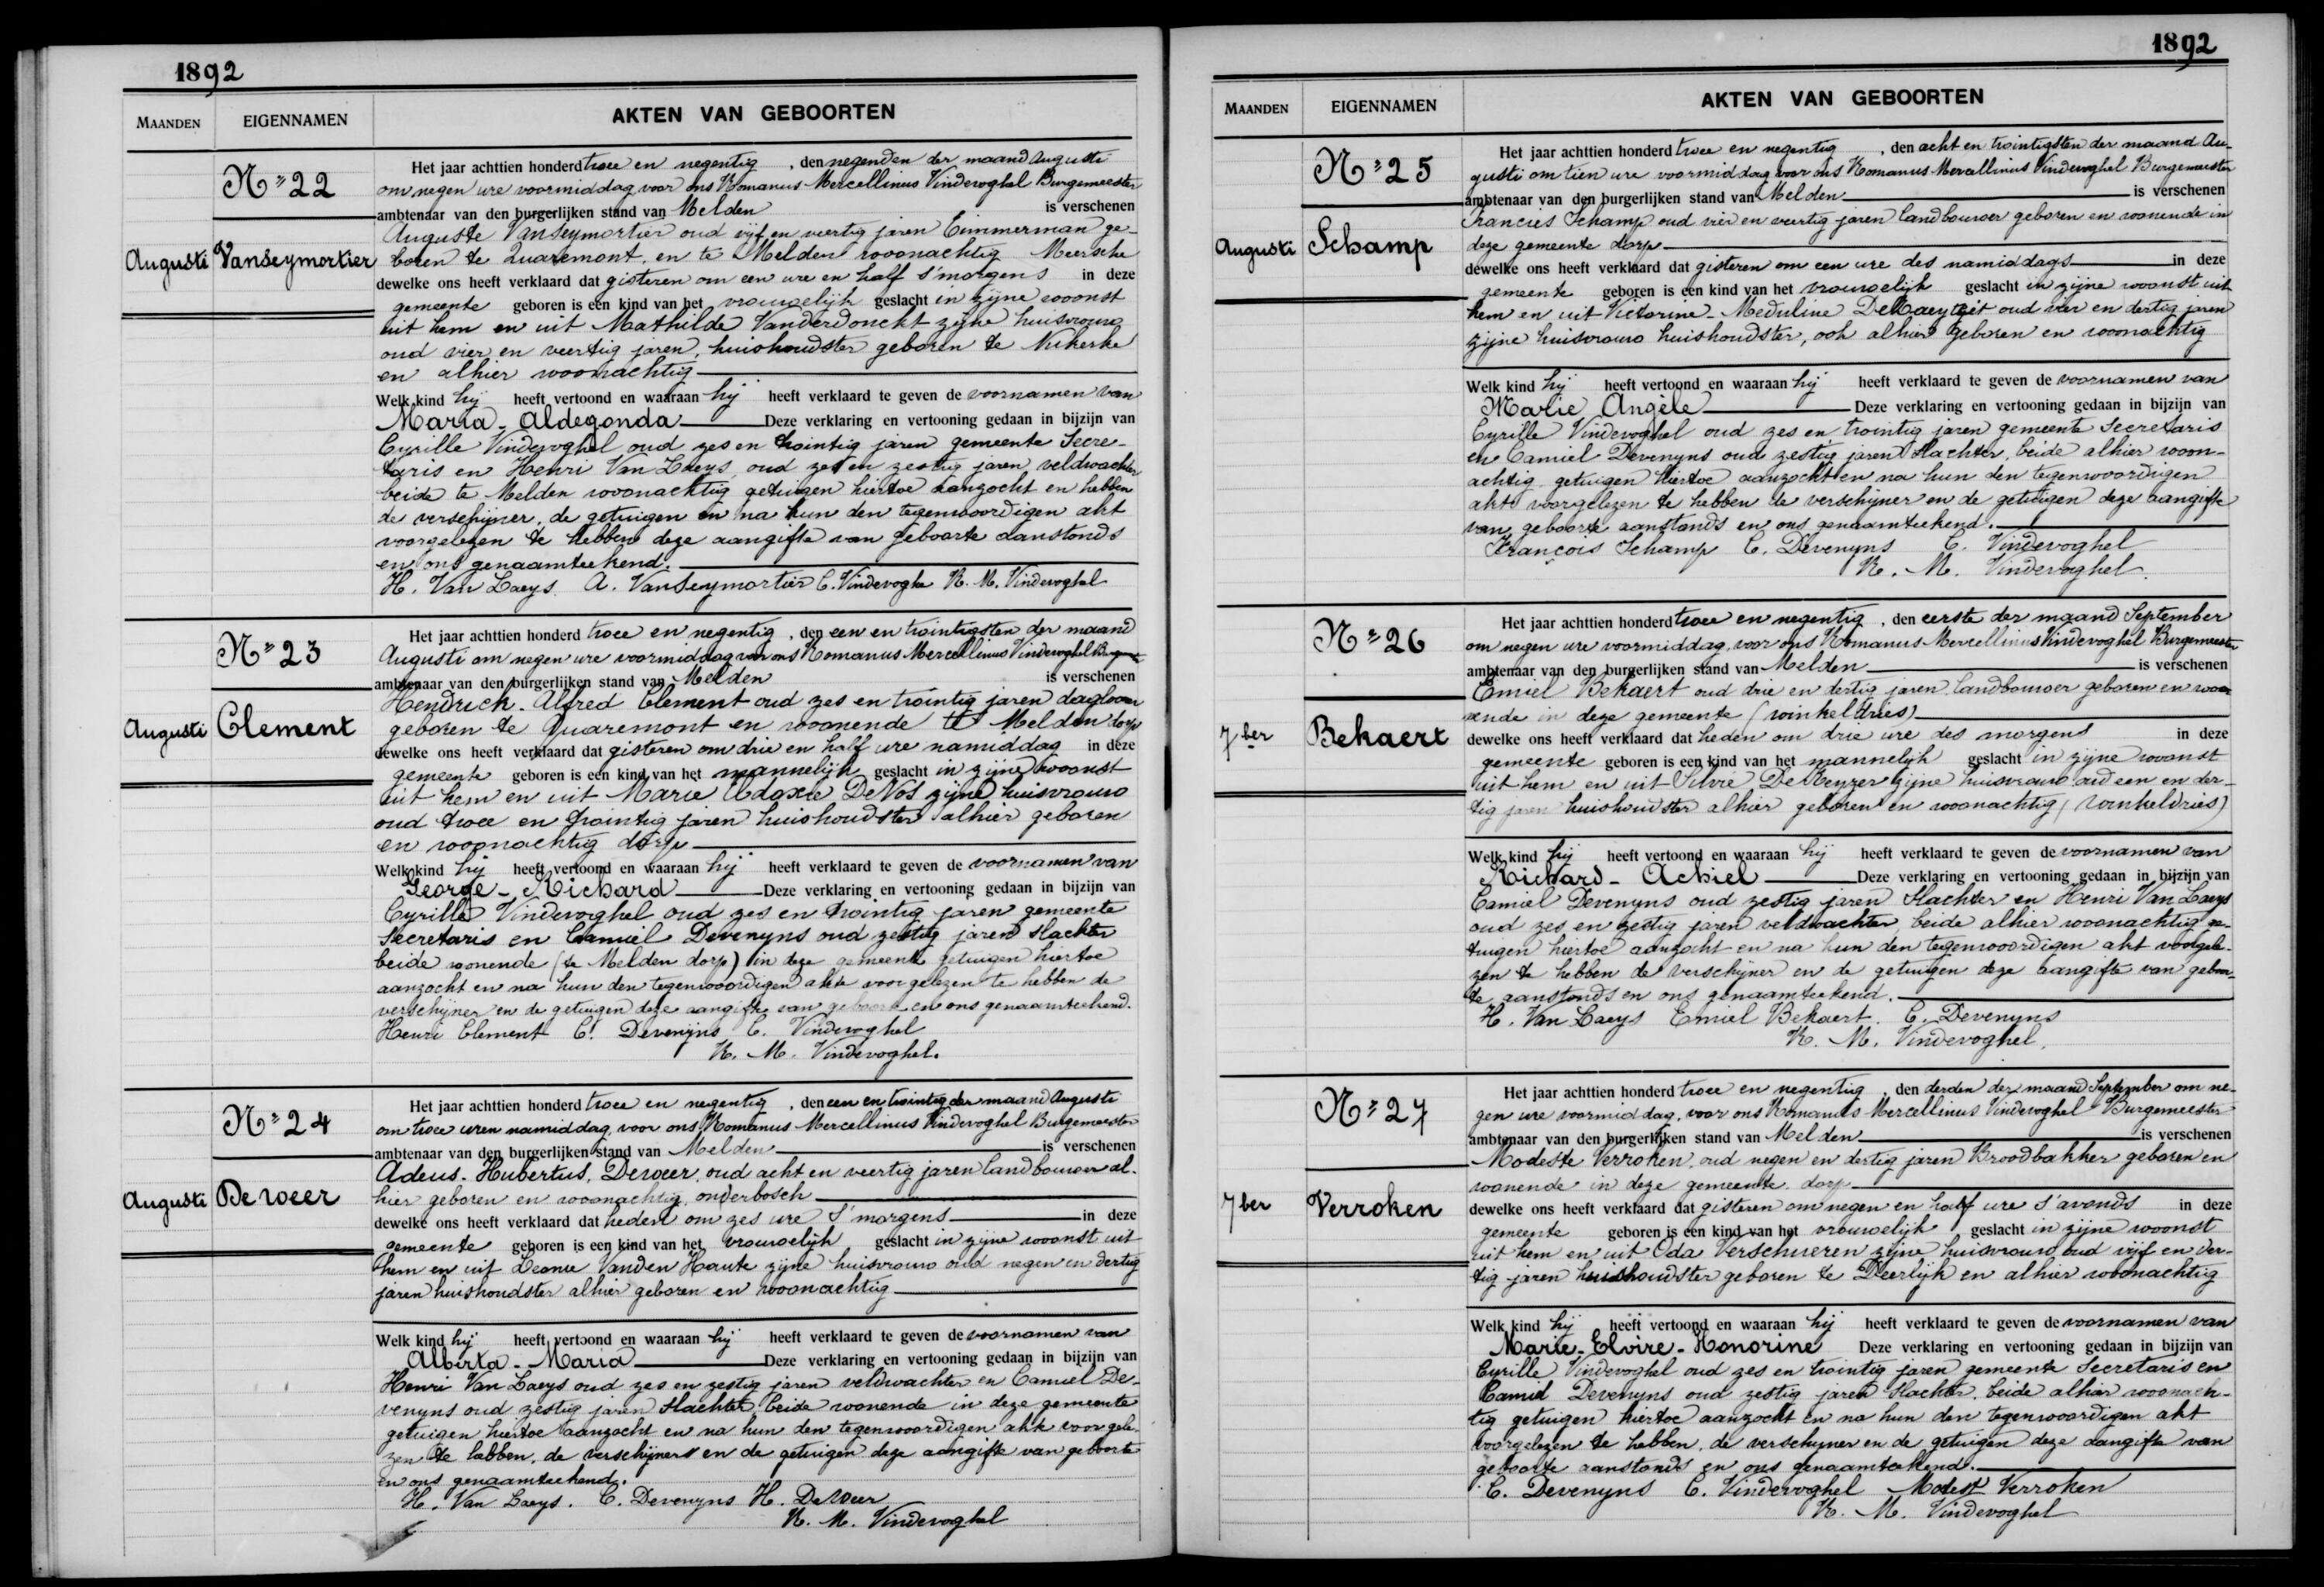 1892
MAANDEN EIGENNAMEN AKTEN VAN GEBOORTEN
N° 22
Augusti Vanseymortier
Het jaar achttien honderd twee en negentig , den negenden der maand Augusti
om negen ure voormiddag voor ons Romanus Mercellinus Vindevoghel Burgemeester
ambtenaar van den burgerlijken stand van Melden is verschenen
Auguste Vanseymortier oud vijf en veertig jaren Timmerman ge-
boren te Quaremont, en te Melden woonachtig Meersche
dewelke ons heeft verklaard dat gisteren om een ure en half s'morgens in deze
gemeente geboren is een kind van het vrouwelijk geslacht in zijne woonst
uit hem en uit Mathilde Vanderdonckt zijne huisvrouw
oud vier en veertig jaren, huishoudster geboren te Nukerke
en alhier woonachtig
Welk kind hij heeft vertoond en waaraan hij heeft verklaard te geven de voornamen van
Maria - Aldegonda Deze verklaring en vertooning gedaan in bijzijn van
Cyrille Vindevoghel oud zes en twintig jaren gemeente Secre-
taris en Henri Van Laeys oud zes en zestig jaren, veldwachter
beide te Melden woonachtig getuigen hiertoe aanzocht en hebben
de verschijner, de getuigen en na hun den tegenwoordigen akt
voorgelezen te hebben deze aangifte van geboorte aanstonds
en ons genaamteekend.
H. Van Laeys. A. Vanseymortier C. Vindevoghe R. M. Vindevoghel
N° 23
Augusti Clement
Het jaar achttien honderd twee en negentig , den een en twintigsten der maand
Augusti om negen ure voormiddag voor ons Romanus Mercellinus Vindevoghel
ambtenaar van den burgerlijken stand van Melden is verschenen
Hendrick - Alfred Clement oud zes en twintig jaren dagloon
geboren te Quaremont en woonende te Melden dorp
dewelke ons heeft verklaard dat gisteren om drie en half ure namiddag in deze
gemeente geboren is een kind van het mannelijk geslacht in zijne woonst
uit hem en uit Marie DeVos zijne huisvrouw
oud twee en twintig jaren huishoudster alhier geboren
en woonachtig dorp
Welk kind hij heeft vertoond en waaraan hij heeft verklaard te geven de voornamen van
George - Richard Deze verklaring en vertooning gedaan in bijzijn van
Cyrille Vindevoghel oud zes en twintig jaren gemeente
Secretaris en Camiel Devenyns oud zestig jaren slachter
beide woonende (te Melden dorp) in deze gemeente getuigen hiertoe
aanzocht en na hun den tegenwoordigen akte voorgelezen te hebben de
verschijner en de getuigen deze aangifte van geboorte en ons genaamteekend.
Henri Clement C. Devenijns C. Vindevoghel
R. M. Vindevoghel.
N° 24
Augusti De weer
Het jaar achttien honderd twee en negentig , den een en twintig der maand Augusti
om twee uren namiddag voor ons Romanus Mercellinus Vindevoghel Burgemeester
ambtenaar van den burgerlijken stand van Melden is verschenen
Adeus - Hubertus, Deweer, oud acht en veertig jaren landbouwer al-
hier geboren en woonachtig, onderbosch
dewelke ons heeft verklaard dat heden om zes ure S'morgens in deze
gemeente geboren is een kind van het vrouwelijk geslacht in zijne woonst uit
hem en uit Leonie Vanden Haute zijne huisvrouw oud negen en dertig
jaren huishoudster alhier geboren en woonachtig
Welk kind hij heeft vertoond en waaraan hij heeft verklaard te geven de voornamen van
Alberta - Maria Deze verklaring en vertooning gedaan in bijzijn van
Henri Van Laeys oud zes en zestig jaren veldwachter en Camiel De-
venyns oud zestig jaren slachter, beide woonende in deze gemeente
getuigen hiertoe aanzocht en na hun den tegenwoordigen akte voor gele-
zen te hebben, de verschijners en de getuigen deze aangifte van geboorte
en ons genaamteekend.
H. Van Laeys. C. Devenyns H. DeWeer
R. M. Vindevoghel
1892
MAANDEN EIGENNAMEN AKTEN VAN GEBOORTEN
N° 25
Augusti Schamp
Het jaar achttien honderd twee en negentig , den acht en twintigsten der maand Au-
gusti om tien ure voormiddag voor ons Romanus Mercellinus Vindevoghel Burgemeester
ambtenaar van den burgerlijken stand van Melden is verschenen
Francies Schamp oud vier en veertig jaren landbouwer geboren en woonende in
deze gemeente dorp
dewelke ons heeft verklaard dat gisteren om een ure des namiddags in deze
gemeente geboren is een kind van het vrouwelijk geslacht in zijne woonst uit
hem en uit Victorine - Meduline oud vier en dertig jaren
zijne huisvrouw huishoudster, ook alhier geboren en woonachtig
Welk kind hij heeft vertoond en waaraan hij heeft verklaard te geven de voornamen van
Marie Angèle Deze verklaring en vertooning gedaan in bijzijn van
Cyrille Vindevoghel oud zes en twintig jaren gemeente Secretaris
en Camiel Devenyns oud zestig jaren Slachter, beide alhier woon-
achtig getuigen hiertoe aanzocht en na hun den tegenwoordigen
akte voorgelezen te hebben de verschijner en de getuigen deze aangifte
van geboorte aanstonds en ons genaamteekend.
François Schamp C. Devenyns C. Vindevoghel
R. M. Vindevoghel.
N° 26
7ber Bekaert
Het jaar achttien honderd twee en negentig , den eerste der maand September
om negen ure voormiddag, voor ons Romanus Mercellinus Vindevoghel Burgemeester
ambtenaar van den burgerlijken stand van Melden is verschenen
Emiel Bekaert oud drie en dertig jaren landbouwer geboren en woo-
nende in deze gemeente (winkeldries)
dewelke ons heeft verklaard dat heden om drie ure des morgens in deze
gemeente geboren is een kind van het mannelijk geslacht in zijne woonst
uit hem en uit Silvie DeKeyzer zijne huisvrouw oud een en der-
tig jaren huishoudster alhier geboren en woonachtig (winkeldries)
Welk kind hij heeft vertoond en waaraan hij heeft verklaard te geven de voornamen van
Richard - Achiel Deze verklaring en vertooning gedaan in bijzijn van
Camiel Devenyns oud zestig jaren Slachter en Henri Van Laeys
oud zes en zestig jaren veldwachter, beide alhier woonachtig ge-
tuigen hiertoe aanzocht en na hun den tegenwoordigen akt voorgele-
zen te hebben de verschijner en de getuigen deze aangifte van geboor-
te aanstonds en ons genaamteekend.
H. Van Laeys Emiel Bekaert. C. Devenyns
R. M. Vindevoghel.
N° 27
7ber Verroken
Het jaar achttien honderd twee en negentig , den derden der maand September om ne-
gen ure voormiddag, voor ons Romanus Mercellinus Vindevoghel Burgemeester
ambtenaar van den burgerlijken stand van Melden is verschenen
Modeste Verroken, oud negen en dertig jaren Broodbakker geboren en
woonende in deze gemeente dorp
dewelke ons heeft verklaard dat gisteren om negen en half ure s'avonds in deze
gemeente geboren is een kind van het vrouwelijk geslacht in zijne woonst
uit hem en uit Oda Verschueren zijne huisvrouw oud vijf en der-
tig jaren huishoudster geboren te Deerlijk en alhier woonachtig
Welk kind hij heeft vertoond en waaraan hij heeft verklaard te geven de voornamen van
Marie - Elvire - Honorine Deze verklaring en vertooning gedaan in bijzijn van
Cyrille Vindevoghel oud zes en twintig jaren gemeente Secretaris en
Camiel Devenyns oud zestig jaren Slachter, beide alhier woonach-
tig getuigen hiertoe aanzocht en na hun den tegenwoordigen akt
voorgelezen te hebben, de verschijner en de getuigen deze aangifte van
geboorte aanstonds en ons genaamteekend.
C. Devenyns C. Vindevoghel Modest Verroken
R. M. Vindevoghel